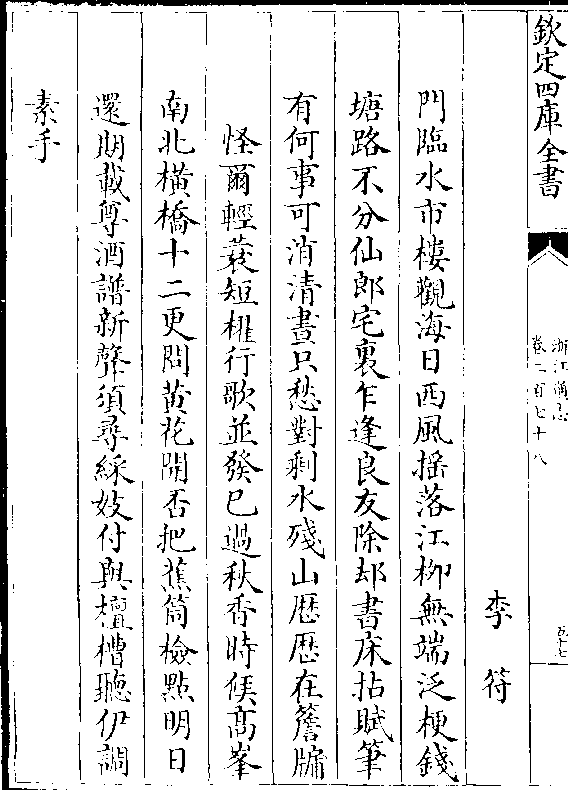 欽定四庫全書
浙江通志
卷二百七十八
五十七
李符
門臨水市樓觀海日西風揺落江柳無端泛梗錢
塘路不分仙郎宅裏乍逢良友除却書床拈賦筆
有何事可消清晝只愁對剩水殘山歴歴在簷牖
怪爾輕蓑短櫂行歌並發已過秋香時候髙峯
南北橫橋十二更問黄花開否把蕉筒檢點明日
還期載尊酒譜新聲須尋綵妓付與檀槽聽伊調
素手